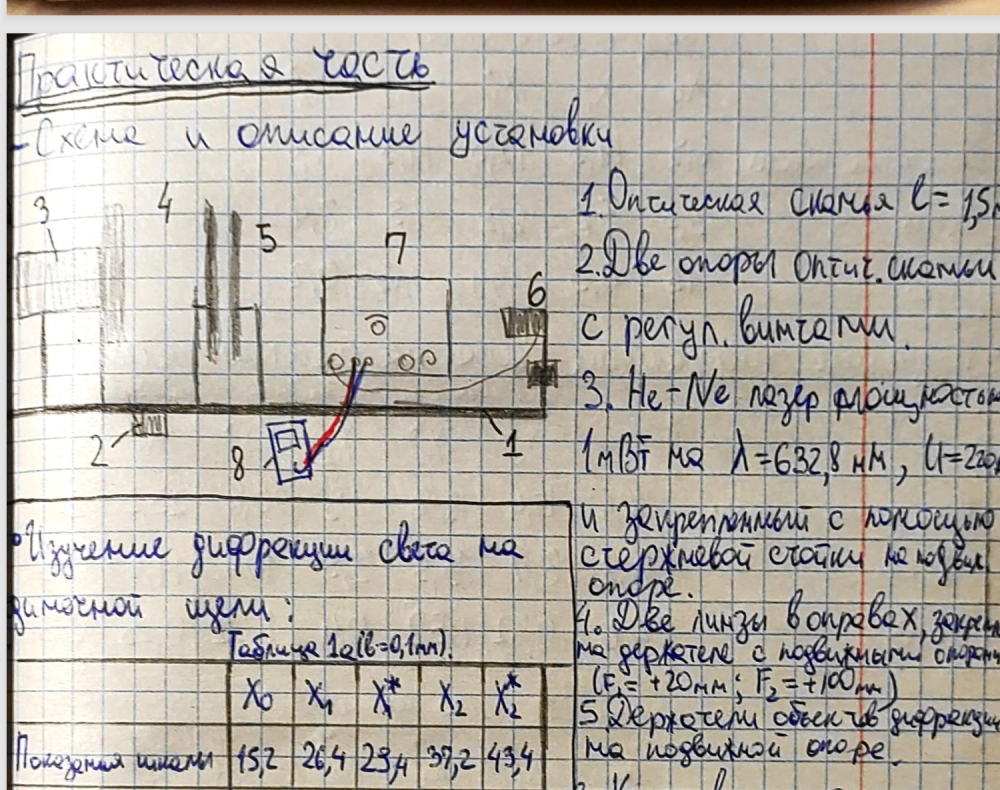 Практическая часть
- Схема и описание установки
3
4
5
7
6
2
8
1
1. Оптическая скамья l = 1,5
2. Две опоры оптич. скамьи
с регул. винтами.
3. He-Ne лазер мощностью
1 мВт на λ=632,8 нм, U=220
и закрепленный с помощью
стержневой стойки на подвиж
опоре.
4. Две линзы в оправах, закреп
на держателе с подвижными опорами
(F₁= +20мм; F₂=+100мм)
5. Держатели объектов дифракции
на подвижной опоре.
• Изучение дифракции света на
диночной щели:
Таблица 1а (b=0,1мм).
X₀ X₁ X₁* X₂ X₂*
Показания шкалы 15,2 26,4 29,4 37,2 43,4